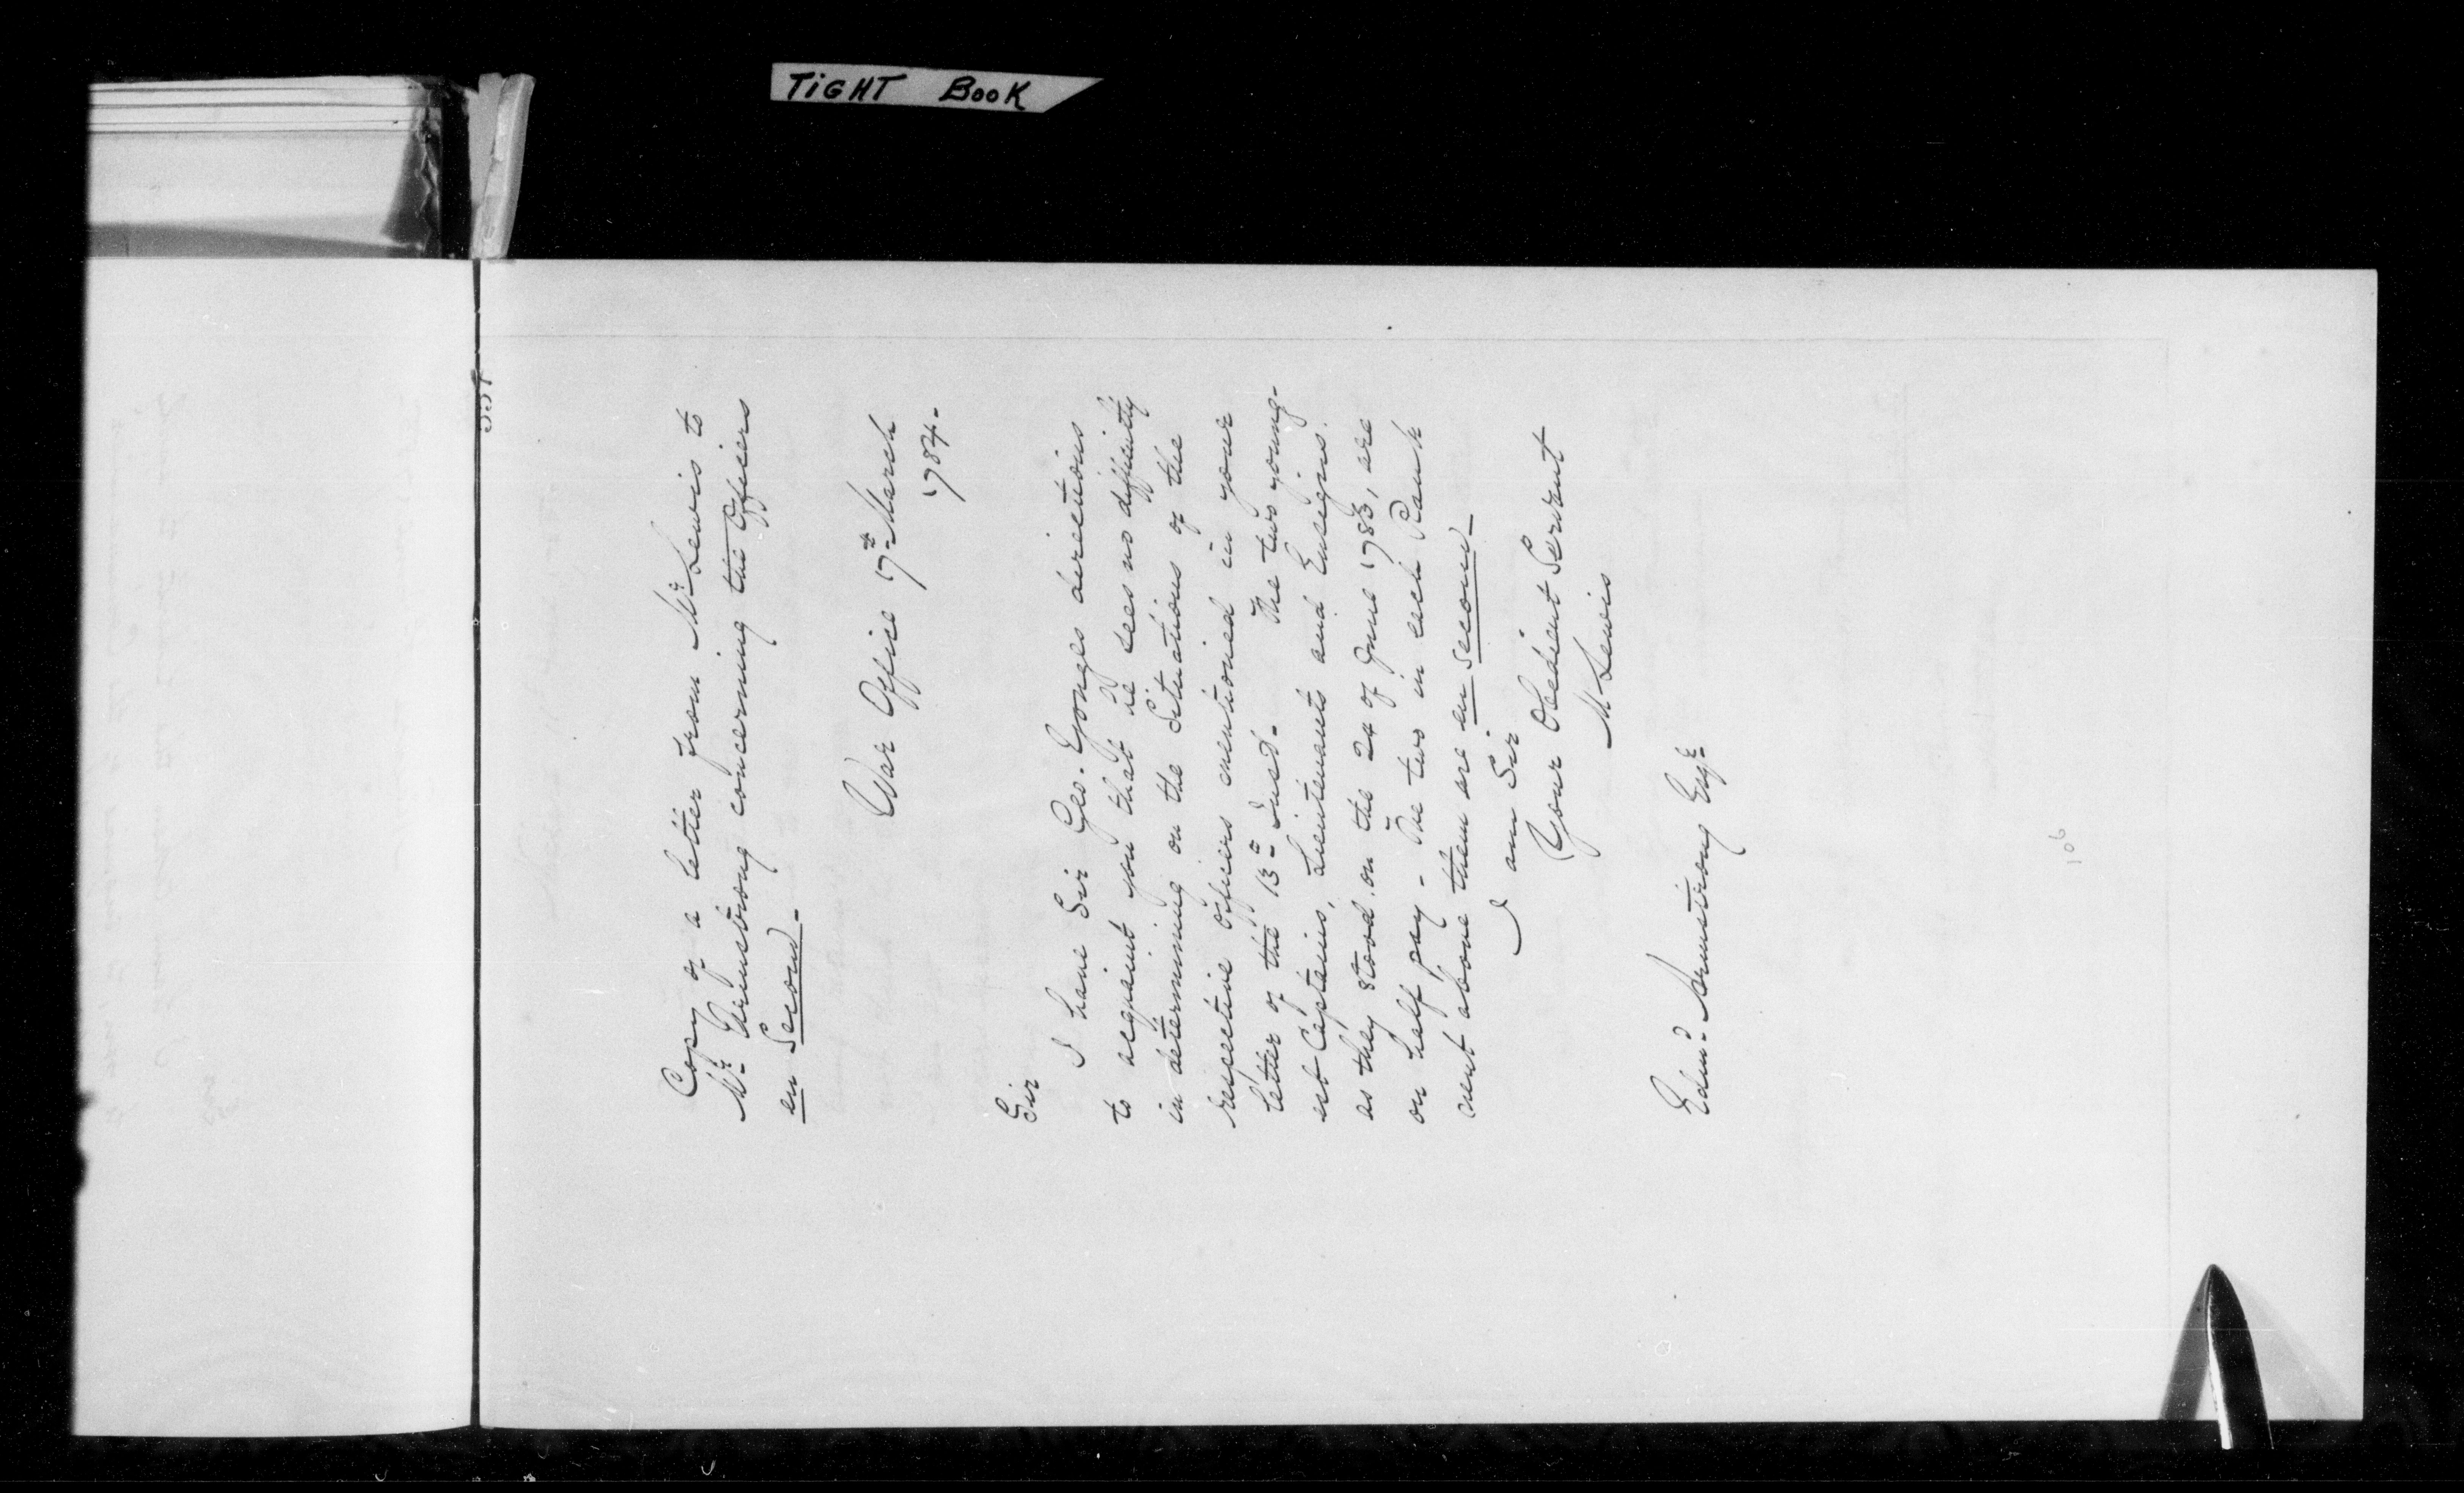 TIGHT BOOK
Copy of a letter from Mr Lewis to
Mr Armstrong concerning the Officers
en Second.
War Office 17th March
1784.
Sir
I have Sir Geo. Yonges directions
to acquaint you that he sees no difficulty
in determining on the Situations of the
respective Officers mentioned in your
letter of the 13th Inst. The two young-
est Captains, Lieutenants and Ensigns.
as they stood on the 24 of June 1783, are
on half pay - The two in each Rank
next above them are en Second -
I am Sir
Your Obedient Servant
M Lewis
Edmd. Armstrong Esqr.
106